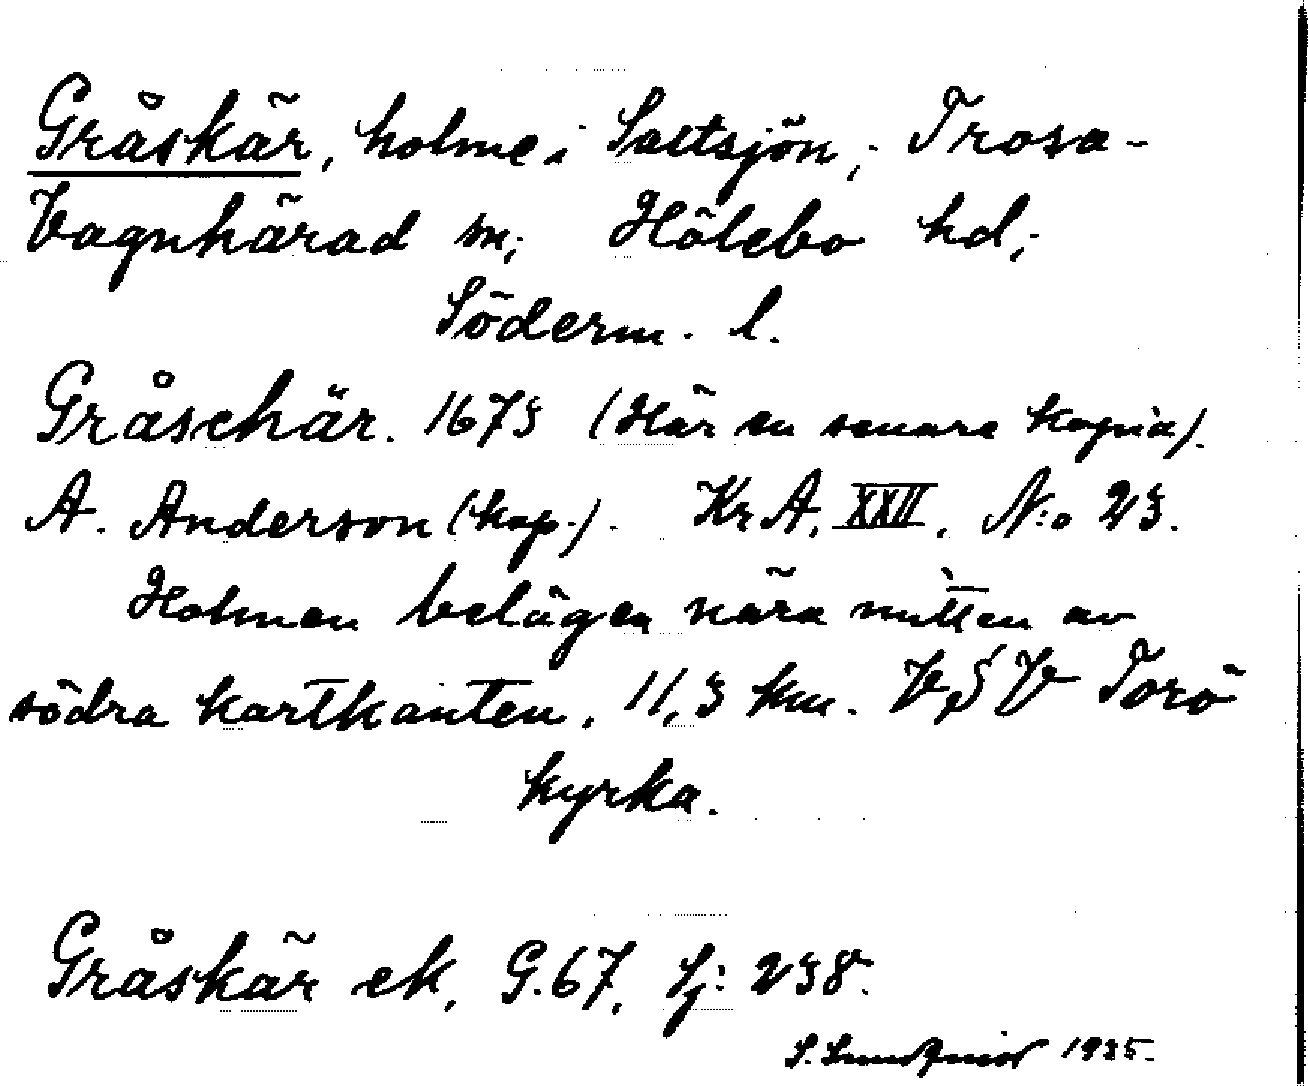 Gråskär, holme i Saltsjön; Trosa-
Vagnhärad sn; Hölebo hd;
Söderm. l.
Gråschär. 1673 (Här en senare kopia).
A. Anderson (kop.). Kr A, XXII, N:o 23.
Holmen belägen nära mitten av
södra kartkanten. 11,3 km. VSV Torö
kyrka.
Gråskär ek, G.67, Sj: 238.
S. 1935.